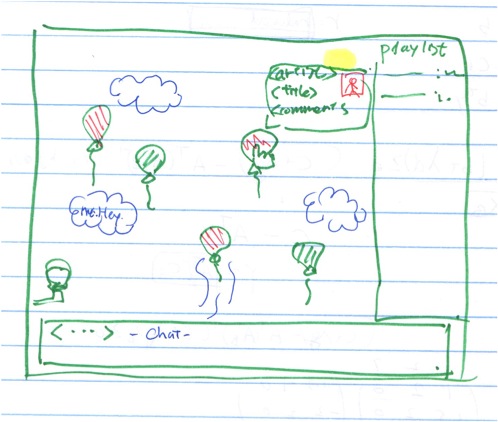 playlist
<artist>
<title>
<comments
<...> - Chat -